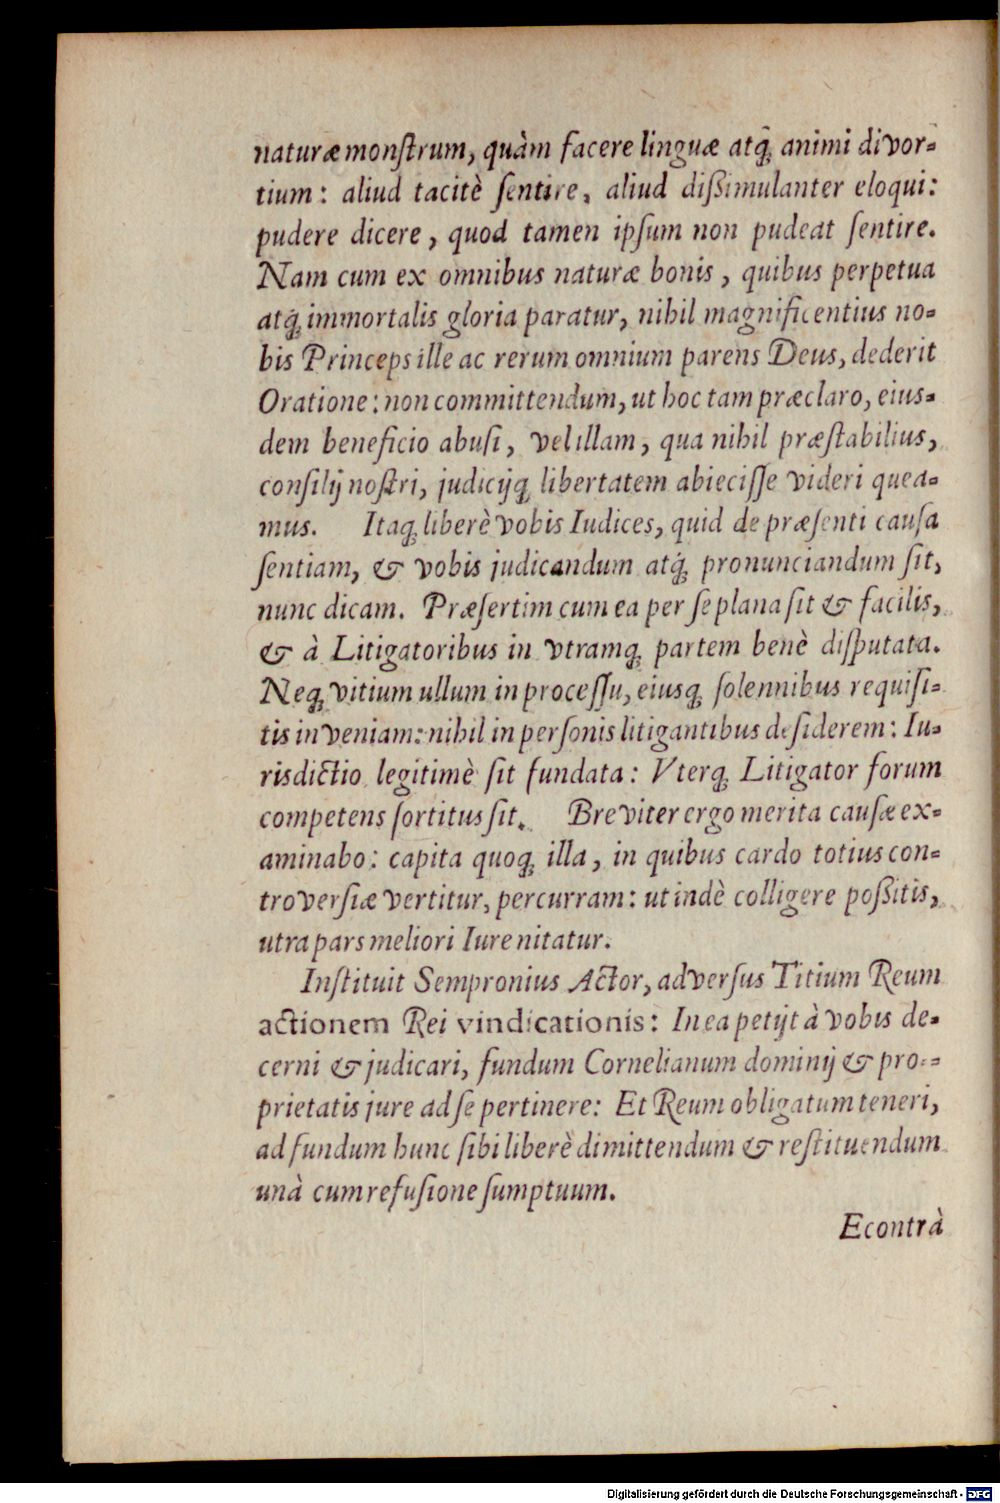 naturæ monſtrum, quàm facere linguæ atq́; animi divor-
tium: aliud tacitè ſentire, aliud dißimulanter eloqui:
pudere dicere, quod tamen ipſum non pudeat ſentire.
Nam cum ex omnibus naturæ bonis, quibus perpetua
atq́; immortalis gloria paratur, nihil magnificentius no-
bis Princeps ille ac rerum omnium parens Deus, dederit
Oratione: non committendum, ut hoc tam præclaro, eius-
dem beneficio abuſi, vel illam, qua nihil præſtabilius,
conſilij noſtri, judicijq; libertatem abieciſſe videri quea-
mus. Itaq; liberè vobis Iudices, quid de præſenti cauſa
ſentiam, & vobis judicandum atq́; pronunciandum ſit,
nunc dicam. Præſertim cum ea per ſe plana ſit & facilis,
& à Litigatoribus in vtramq; partem benè diſputata.
Neq; vitium ullum in proceſſu, eiusq; ſolennibus requiſi-
tis inveniam: nihil in perſonis litigantibus deſiderem: Iu-
risdictio legitimè ſit fundata: Vterq; Litigator forum
competens ſortitus ſit. Breviter ergo merita cauſæ ex-
aminabo: capita quoq; illa, in quibus cardo totius con-
troverſiæ vertitur, percurram: ut indè colligere poßitis,
utra pars meliori Iure nitatur.
Inſtituit Sempronius Actor, adverſus Titium Reum
actionem Rei vindicationis: In ea petijt à vobis de-
cerni & judicari, fundum Cornelianum dominij & pro-
prietatis jure ad ſe pertinere: Et Reum obligatum teneri,
ad fundum hunc ſibi liberè dimittendum & reſtituendum
unà cum refuſione ſumptuum.
Econtrà
Digitalisierung gefördert durch die Deutsche Forschungsgemeinschaft - DFG